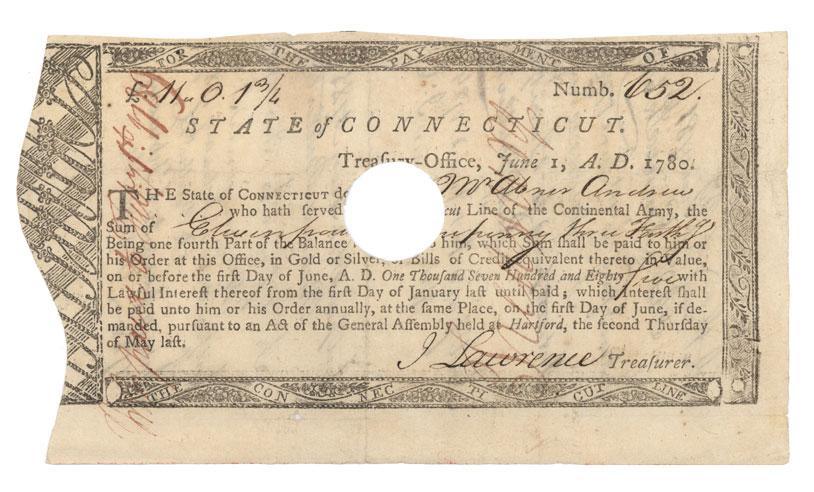 FOR THE PAYMENT OF
£ 11 „ 0. 1 3/4 Numb. 652.
STATE of CONNECTICUT.
Treasury-Office, June 1, A. D. 1780.
THE State of CONNECTICUT do Mr Abner Andrew
who hath served cut Line of the Continental Army, the
Sum of Eleven pou penny three Farthgs
Being one fourth Part of the Balance to him, which Sum ſhall be paid to him or
his Order at this Office, in Gold or Silver, or Bills of Credit equivalent thereto in Value,
on or before the firſt Day of June, A. D. One Thouſand Seven Hundred and Eighty five with
Lawful Intereſt thereof from the firſt Day of January laſt until paid; which Intereſt ſhall
be paid unto him or his Order annually, at the ſame Place, on the firſt Day of June, if de-
manded, purſuant to an Act of the General Aſſembly held at Hartford, the ſecond Thurſday
of May laſt.
J Lawrence Treaſurer.
THE CONNECTICUT LINE